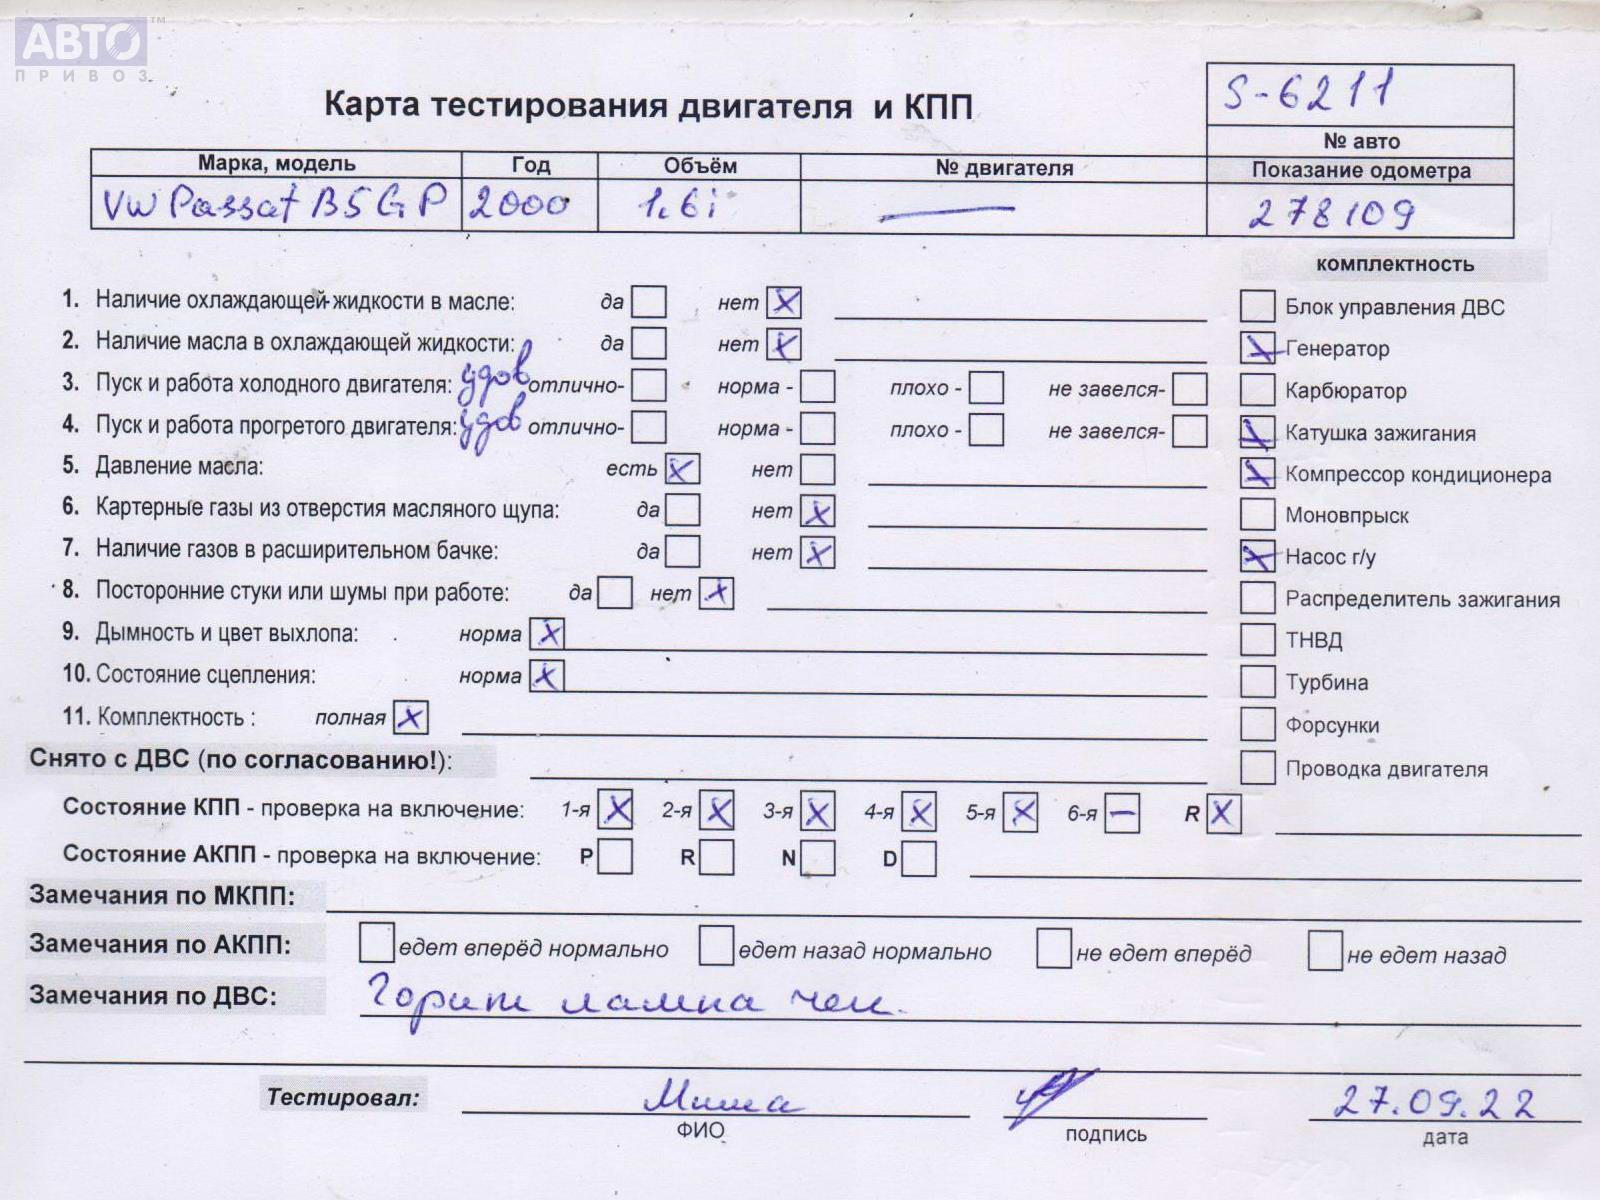 АВТО™
ПРИВОЗ
S-6211
Карта тестирования двигателя и КПП
№ авто
Марка, модель Год Объём № двигателя Показание одометра
VW Passat B5 GP 2000 1.6i — 278109
комплектность
1. Наличие охлаждающей жидкости в масле: да нет X
Блок управления ДВС
2. Наличие масла в охлаждающей жидкости: да нет X
X Генератор
3. Пуск и работа холодного двигателя: удов отлично- норма - плохо - не завелся-
Карбюратор
4. Пуск и работа прогретого двигателя: удов отлично- норма - плохо - не завелся-
X Катушка зажигания
5. Давление масла: есть X нет
X Компрессор кондиционера
6. Картерные газы из отверстия масляного щупа: да нет X
Моновпрыск
7. Наличие газов в расширительном бачке: да нет X
X Насос г/у
8. Посторонние стуки или шумы при работе: да нет X
Распределитель зажигания
9. Дымность и цвет выхлопа: норма X
ТНВД
10. Состояние сцепления: норма X
Турбина
11. Комплектность : полная X
Форсунки
Снято с ДВС (по согласованию!):
Проводка двигателя
Состояние КПП - проверка на включение: 1-я X 2-я X 3-я X 4-я X 5-я X 6-я — R X
Состояние АКПП - проверка на включение: P R N D
Замечания по МКПП:
Замечания по АКПП: едет вперёд нормально едет назад нормально не едет вперёд не едет назад
Замечания по ДВС: Горит лампа чек.
Тестировал: Миша 27.09.22
ФИО подпись дата